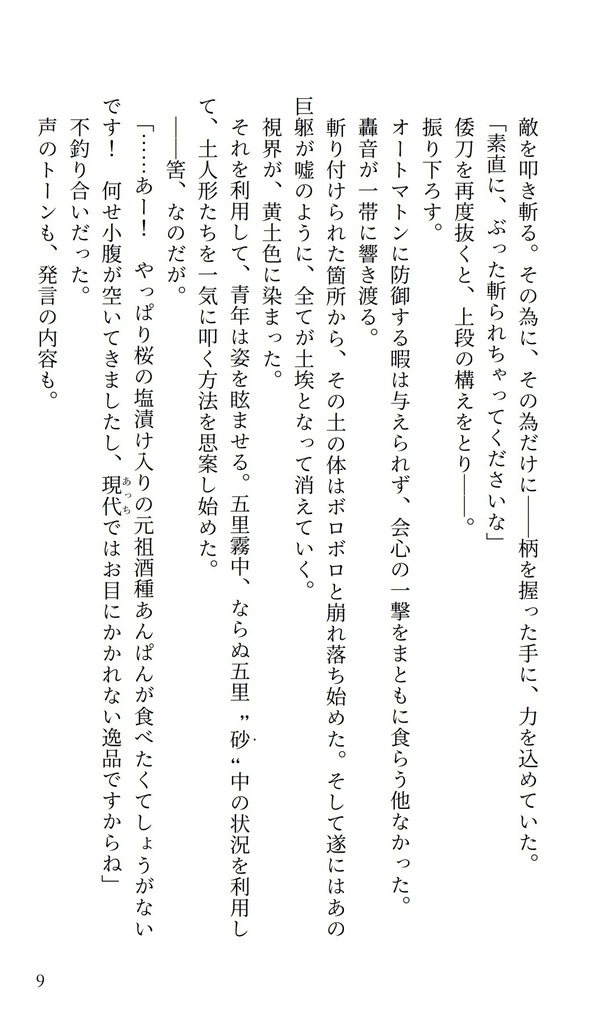 敵を叩き斬る。その為に、その為だけに――柄を握った手に、力を込めていた。
「素直に、ぶった斬られちゃってくださいな」
倭刀を再度抜くと、上段の構えをとり――。
振り下ろす。
オートマトンに防御する暇は与えられず、会心の一撃をまともに食らう他なかった。
轟音が一帯に響き渡る。
斬り付けられた箇所から、その土の体はボロボロと崩れ落ち始めた。そして遂にはあの
巨躯が嘘のように、全てが土埃となって消えていく。
視界が、黄土色に染まった。
それを利用して、青年は姿を眩ませる。五里霧中、ならぬ五里〝砂〟中の状況を利用し
て、土人形たちを一気に叩く方法を思案し始めた。
――筈、なのだが。
「……あー！　やっぱり桜の塩漬け入りの元祖酒種あんぱんが食べたくてしょうがない
です！　何せ小腹が空いてきましたし、現代あっちではお目にかかれない逸品ですからね」
不釣り合いだった。
声のトーンも、発言の内容も。
9